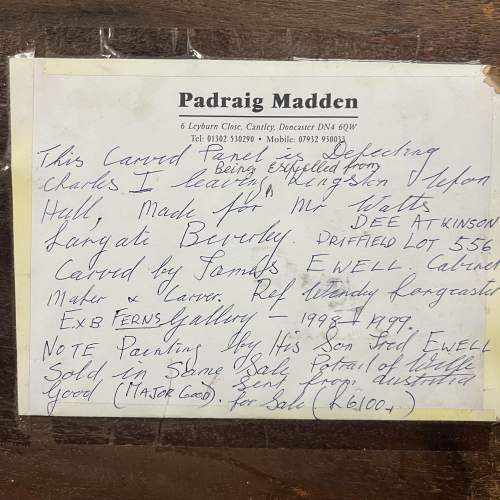 Padraig Madden
6 Leyburn Close, Cantley, Doncaster DN4 6QW
Tel: 01302 530290 • Mobile: 07932 950033
This Carved Panel is Defecting
Being Expelled from
Charles I leaving Kingston Upon
Hull, Made for Mr Watts
DEE ATKINSON
Largate Beverley. DRIFFIELD LOT 556
Carved by Tomass EWELL. Cabinet
Maker & Carver. Ref Wendy Longcaster
EXB FERNS Gallery - 1998 - 1999.
NOTE Painting by His Son Fred EWELL
Sold in Same Sale Potrait of Wife
Good (MAJOR GOOD). Sent from Australia
for Sale (£6100+)